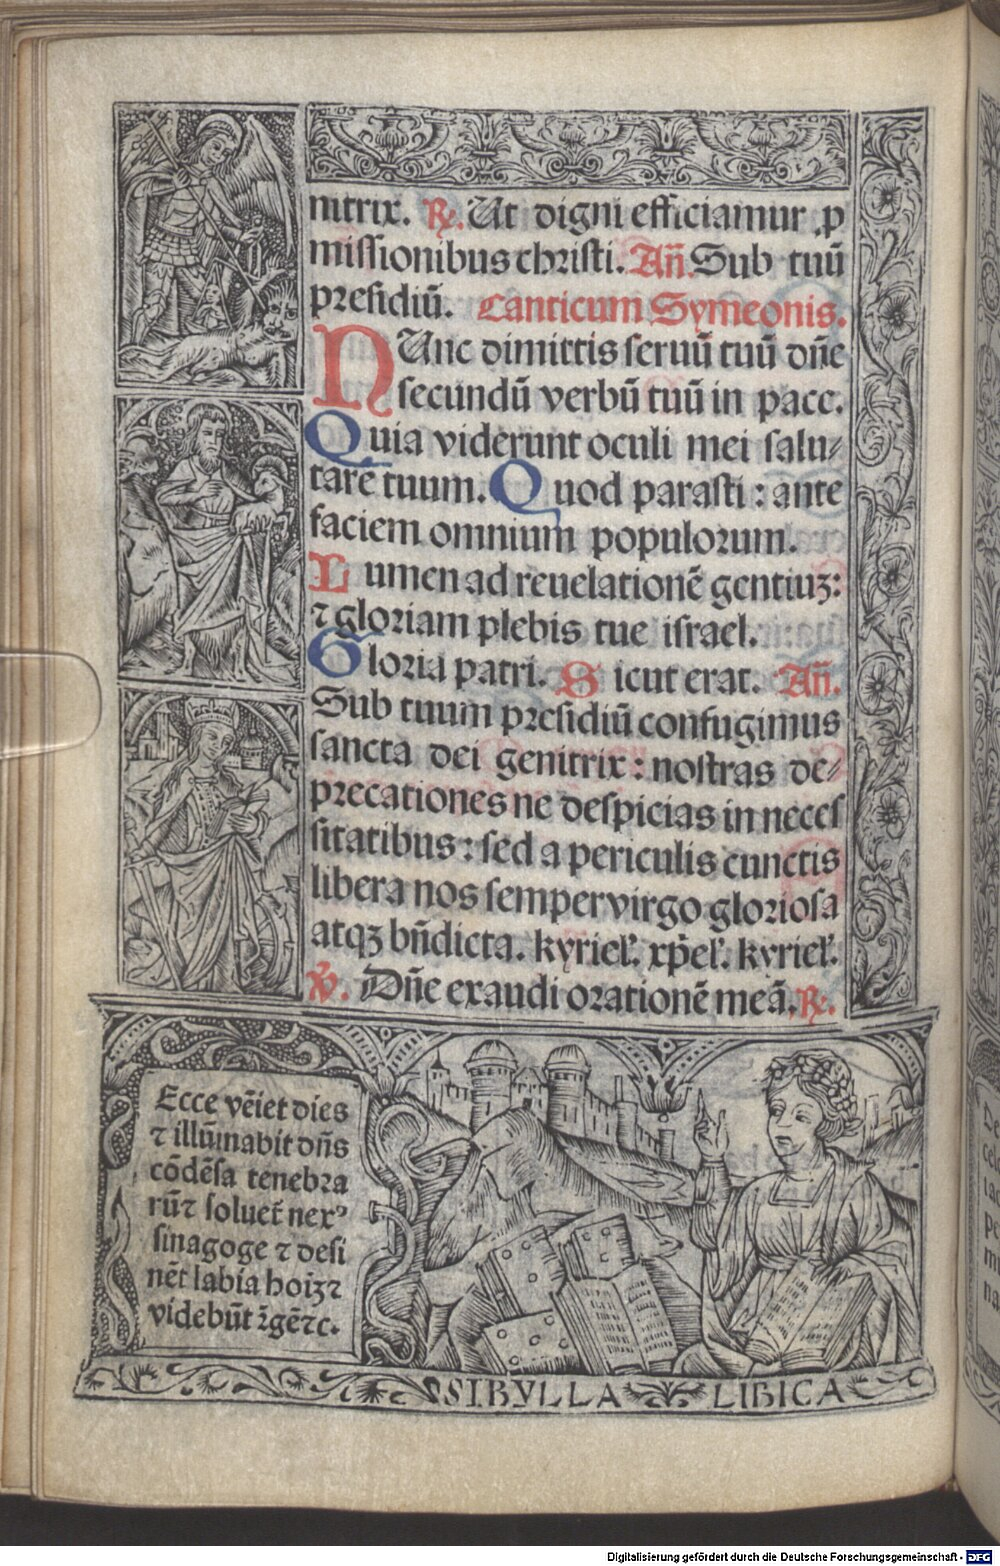 nitrix. ℟. Ut digni efficiamur p
missionibus christi. Añ. Sub tuū
presidiū. Canticum Symeonis.
NUnc dimittis seruū tuū dñe
secundū verbū tuū in pace.
Quia viderunt oculi mei salu-
tare tuum. Quod parasti : ante
faciem omnium populorum.
Lumen ad reuelationē gentiuꝫ:
⁊ gloriam plebis tue israel.
Gloria patri. Sicut erat. Añ.
Sub tuum presidiū confugimus
sancta dei genitrix : nostras de-
precationes ne despicias in neces
sitatibus : sed a periculis cunctis
libera nos semper virgo gloriosa
atqꝫ bñdicta. kyriel'. xp̄el'. kyriel'.
℣. Dñe exaudi orationē meā. ℟.
Ecce vēiet dies
⁊ illūinabit dñs
cōdēsa tenebra
rū⁊ soluet̄ nexꝰ
sinagoge ⁊ desi
nēt labia hoīꝫ⁊
videbūt r̄gē⁊c.
SIBYLLA LIBICA
Digitalisierung gefördert durch die Deutsche Forschungsgemeinschaft - DFG